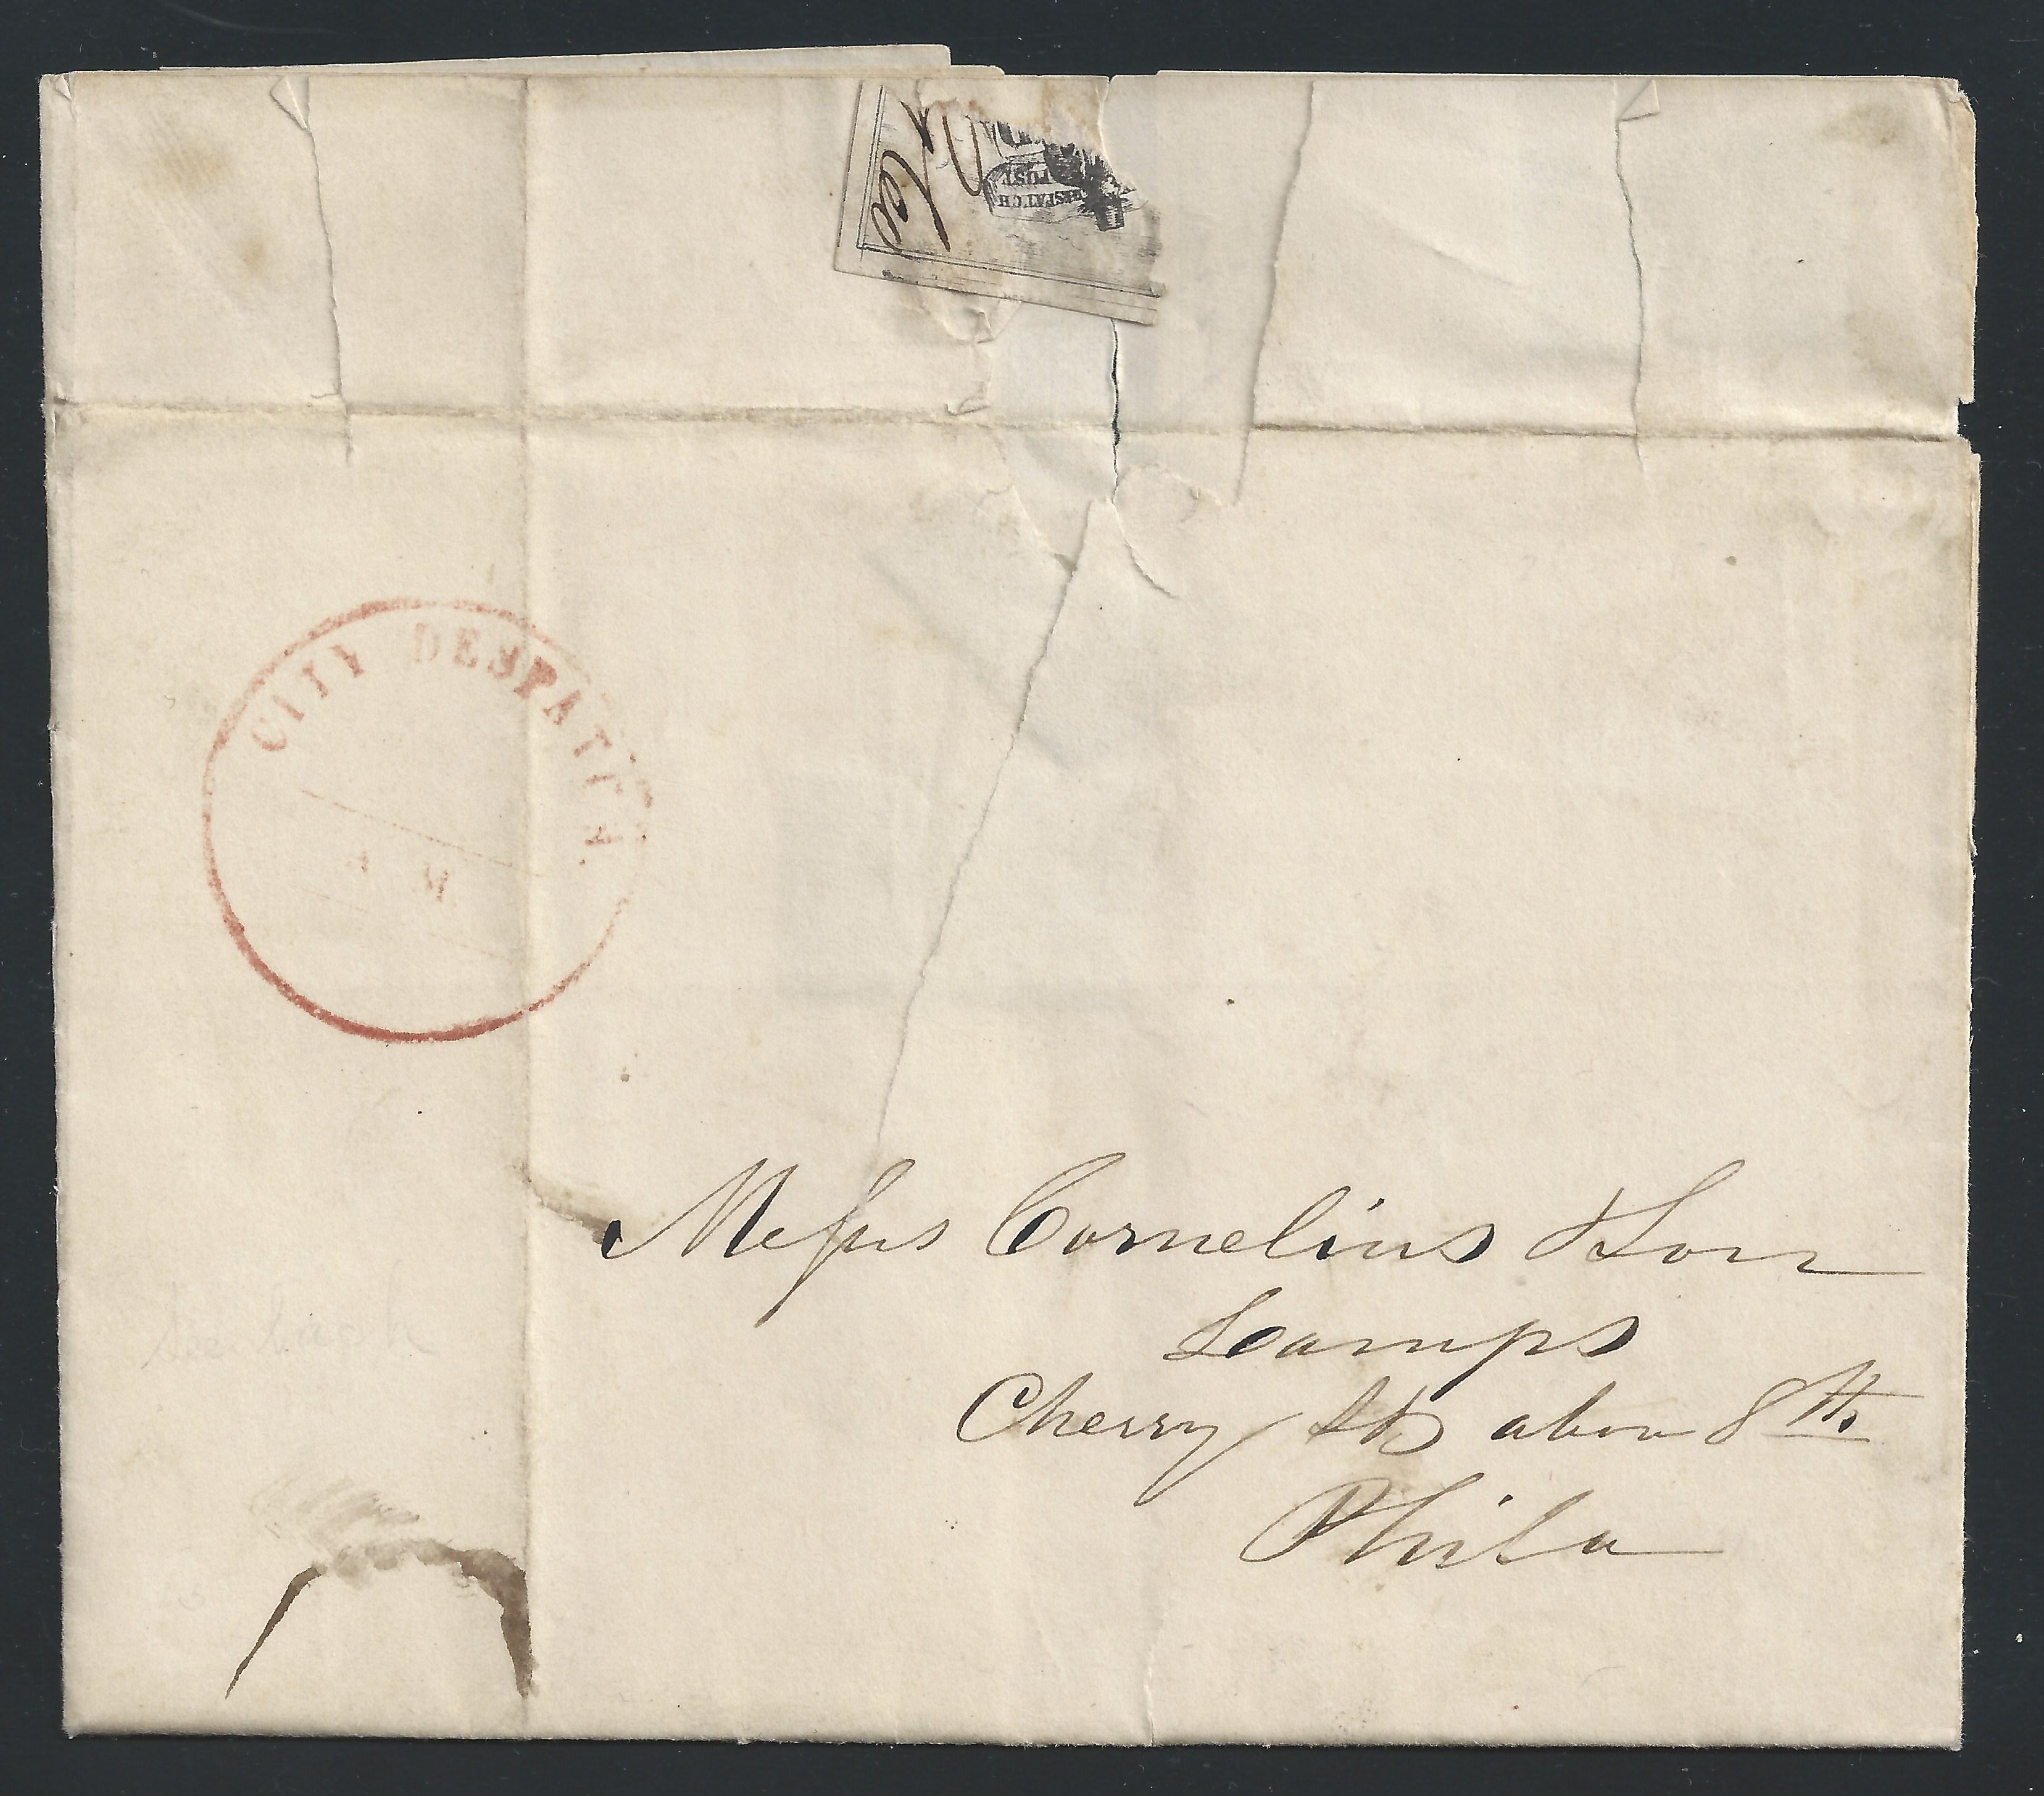 DESPATCH
POST
CITY DESPATCH
M
see back
Messrs Cornelius & Son
Lamps
Cherry St above 8th
Phila